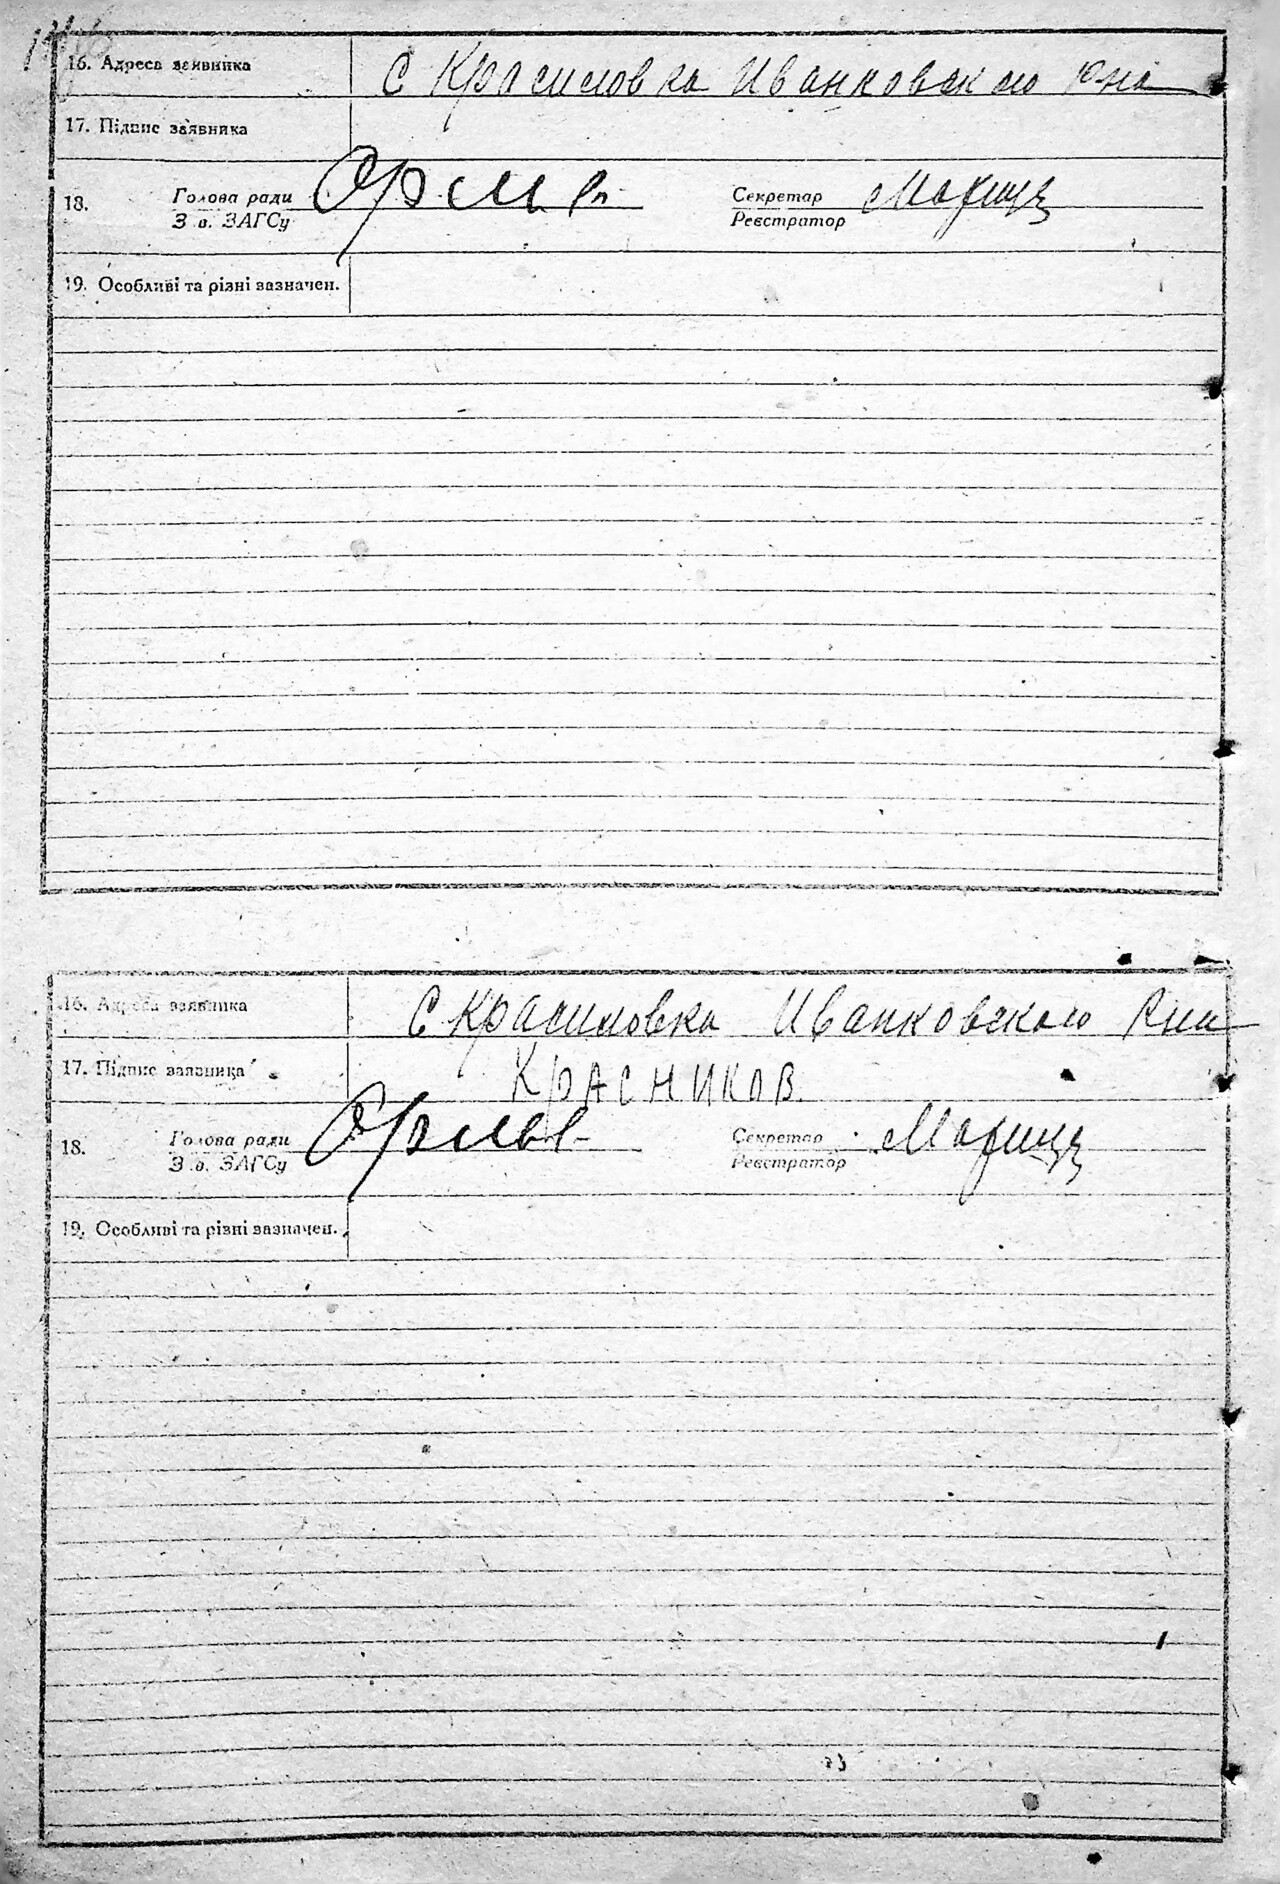 16. Адреса заявника С Красиловка Иванковского Рна
17. Підпис заявника
18. Голова ради Секретар
З в. ЗАГСу Реєстратор
19. Особливі та різні зазначен.
16. Адреса заявника С Красиловка Иванковского Рна
17. Підпис заявника КРАСНИКОВ.
18. Голова ради Секретар
З в. ЗАГСу Реєстратор
19. Особливі та різні зазначен.